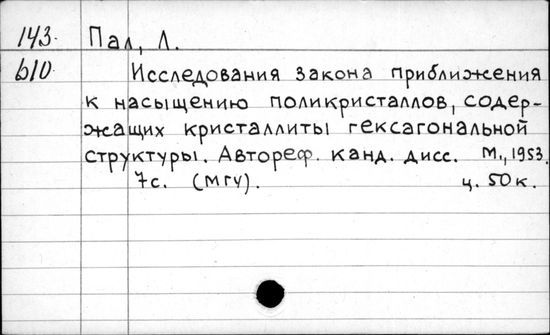 143. Пал, Л.
б10. Исследования закона приближения
к насыщению поликристаллов, содер-
жащих кристаллиты гексагональной
структуры. Автореф. канд. дисс. М., 1953.
7с. (МГУ). ц. 50 к.